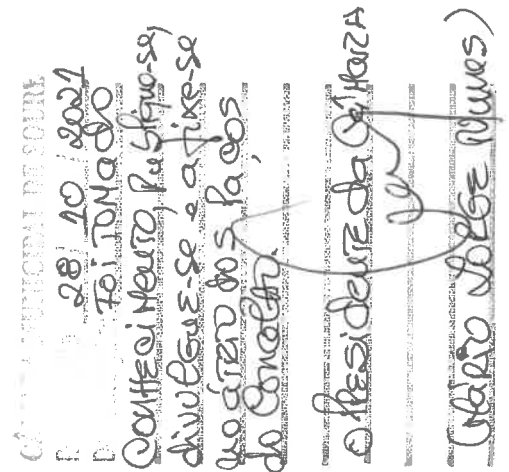 CÂMARA MUNICIPAL DE SOURE
28 / 10 / 2021
Foi Tomado
Conhecimento, Publique-se,
divulgue-se e afixe-se
no átrio dos Paços
do Concelho.
O Presidente da Câmara
(Mário Jorge Nunes)